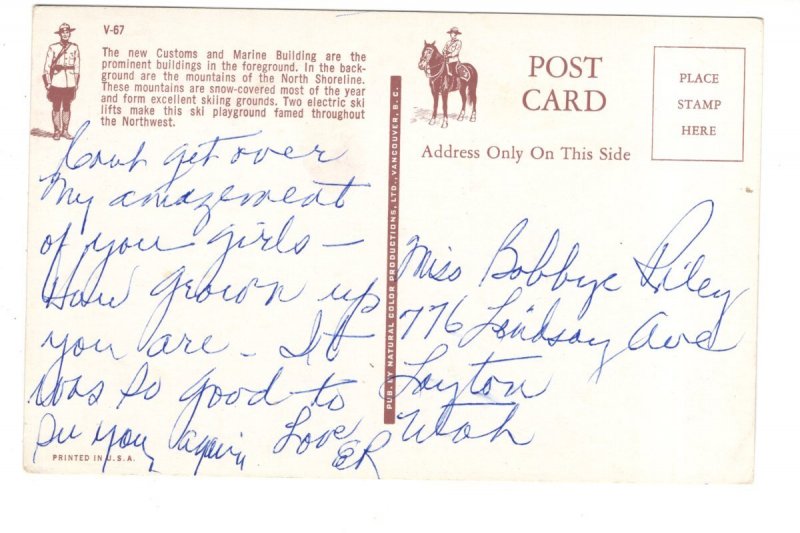 V-67
The new Customs and Marine Building are the
prominent buildings in the foreground. In the back-
ground are the mountains of the North Shoreline.
These mountains are snow-covered most of the year
and form excellent skiing grounds. Two electric ski
lifts make this ski playground famed throughout
the Northwest.
Can't get over
my amazement
of you girls —
How grown up
you are - It
was so good to
see you again, Love
ER
PRINTED IN U.S.A.
PUB. BY NATURAL COLOR PRODUCTIONS, LTD., VANCOUVER, B. C.
POST
CARD
Address Only On This Side
PLACE
STAMP
HERE
Miss Bobbye Riley
776 Lindsay Ave
Layton
Utah